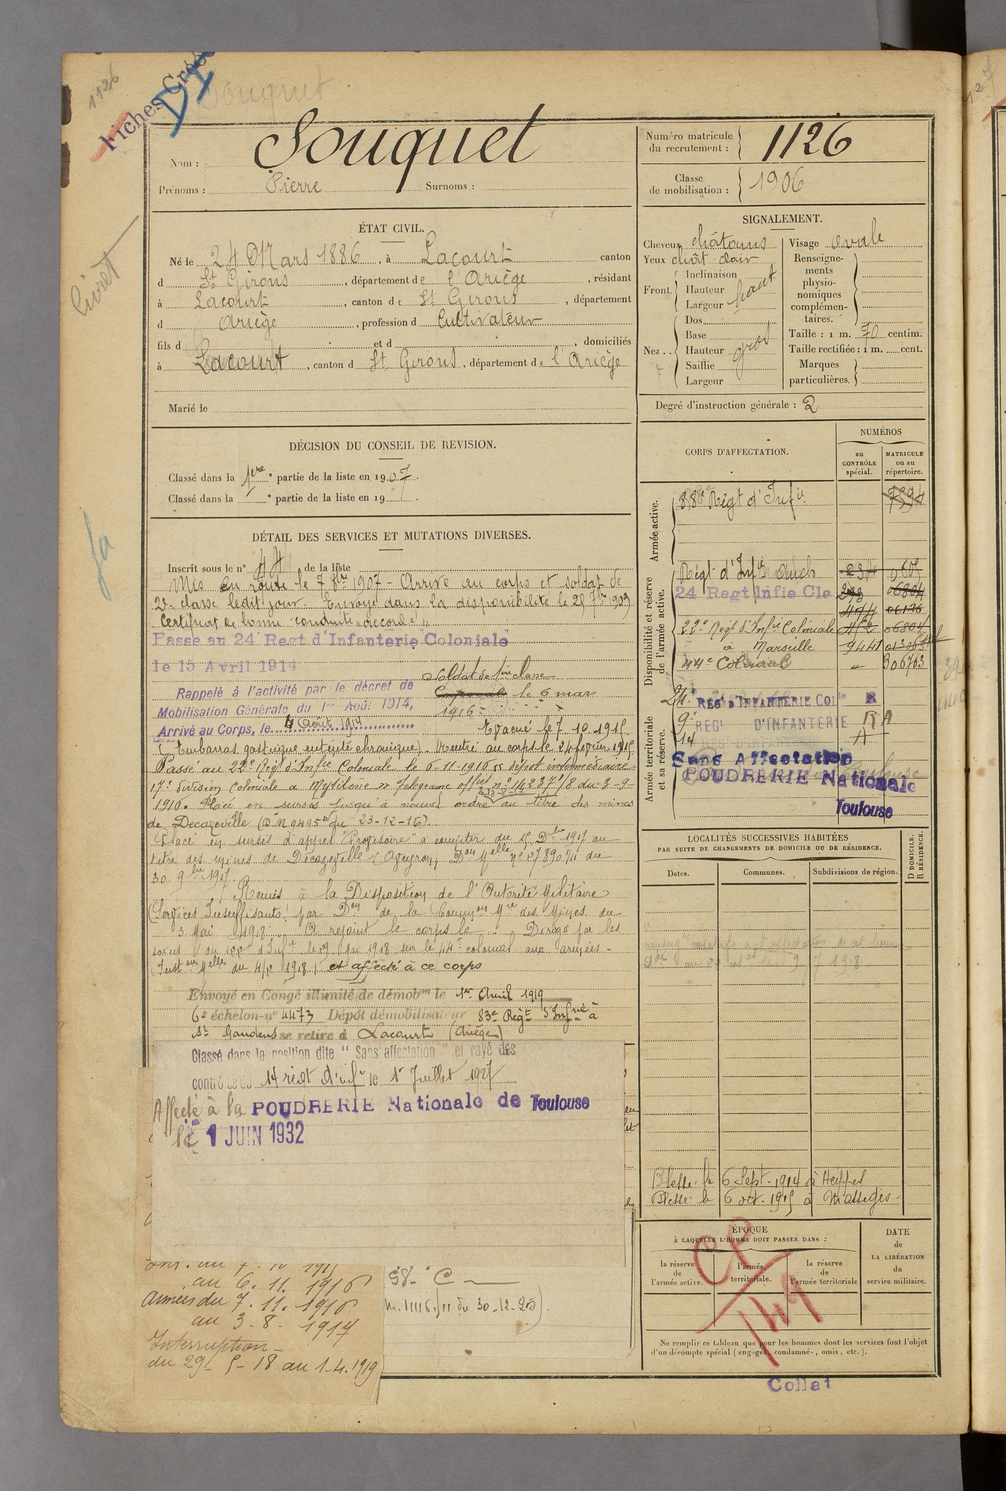 1126
Fiches
Souquet
Nom : Souquet
Prénoms : Pierre Surnoms :
Numéro matricule du recrutement : 1126
Classe de mobilisation : 1906
Livret
ÉTAT CIVIL.
Né le 24 Mars 1886, à Lacourt canton
d St Girons, département de l'Ariège, résidant
à Lacourt, canton de St Girons, département
d Ariège, profession d Cultivateur
fils d et d domiciliés
à Lacourt, canton d St Girons, département de l'Ariège
Marié le
SIGNALEMENT.
Cheveux châtains
Yeux chât clair
Front. Inclinaison
Hauteur haut
Largeur
Nez.. Dos
Base
Hauteur gros
Saillie
Largeur
Visage ovale
Renseignements physionomiques complémentaires.
Taille : 1 m. 70 centim.
Taille rectifiée : 1 m. cent.
Marques particulières.
Degré d'instruction générale : 2
DÉCISION DU CONSEIL DE REVISION.
Classé dans la 1ère partie de la liste en 1907.
Classé dans la partie de la liste en 19
DÉTAIL DES SERVICES ET MUTATIONS DIVERSES.
Inscrit sous le n° 44 de la liste
Mis en route le 7 8bre 1907 - Arrivé au corps et soldat de
2e classe ledit jour. Envoyé dans la disponibilité le 25 7bre 1909
Certificat de bonne conduite "accordé"
Passé au 24 Regt d'Infanterie Coloniale
le 15 Avril 1914
Rappelé à l'activité par le décret de
Mobilisation Générale du 1er Août 1914,
Arrivé au Corps, le 4 Août 1914
Soldat de 1ère classe
Caporal le 6 mar
1916
Evacué le 7.10.1915
(Embarras gastrique entérite chronique). Rentré au corps le 24 février 1916
Passé au 22e Régt d'Infie Coloniale le 6-11-1916 dépôt intermédiaire
17e Division Coloniale a Mytilène
1916. Placé en sursis jusqu'à nouvel ordre au titre des mines
de Decazeville (DM 9495 du 23-12-16).
Placé en sursis d'appel "Provisoire" à compter du 15 Dbre 1917 au
titre des mines de Decazeville (Aveyron)
30 9bre 1917
Remis à la Disposition de l'Autorité Militaire
(Services Insuffisants) par Don de la Common Mre des Mines du
3 Mai 1918. A rejoint le corps le Dirigé
le 29 Mai 1918 sur le 44e colonial aux armées -
et affecté à ce corps
Envoyé en Congé illimité de démobon le 1er Avril 1919
6e échelon n° 4473 Dépôt démobilisateur 83e Régt d'Infrie à
St Gaudens se retire à Lacourt (Ariège)
Classé dans la position dite "Sans affectation" et rayé des
contrôles du 14 régt d'infie le 1er Juillet 1927
Affecté à la POUDRERIE Nationale de Toulouse
le 1 JUIN 1932
au 7.10 1915
au 6.11.1916
Armées du 7.11.1916
au 3-8-1917
Interruption -
du 29-5-18 au 1-4-1919
CORPS D'AFFECTATION.
NUMÉROS
au CONTRÔLE spécial.
MATRICULE ou au répertoire.
Armée active.
88e Régt d'Infie
Disponibilité et réserve de l'armée active.
Régt d'Infie Auch
24 Regt Infie Cle
22e Régt d'Infie Coloniale
à Marseille
44e Colonial
Armée territoriale et sa réserve.
24e REGT D'INFANTERIE COLle R
9e REGT D'INFANTERIE RA
14 A
Sans Affectation
POUDRERIE Nationale
Toulouse
LOCALITÉS SUCCESSIVES HABITÉES
PAR SUITE DE CHANGEMENTS DE DOMICILE OU DE RÉSIDENCE.
Dates.
Communes.
Subdivisions de région.
D DOMICILE. R RÉSIDENCE.
Blessé le 6 Sept. 1914 à Heippes
Blessé le 6 oct. 1915 à Massiges
ÉPOQUE
À LAQUELLE L'HOMME DOIT PASSER DANS :
la réserve de l'armée active.
l'armée territoriale.
la réserve de l'armée territoriale
DATE de LA LIBÉRATION du service militaire.
CP
149
Ne remplir ce tableau que pour les hommes dont les services font l'objet
d'un décompte spécial (engagés, condamnés, omis, etc.).
Collat